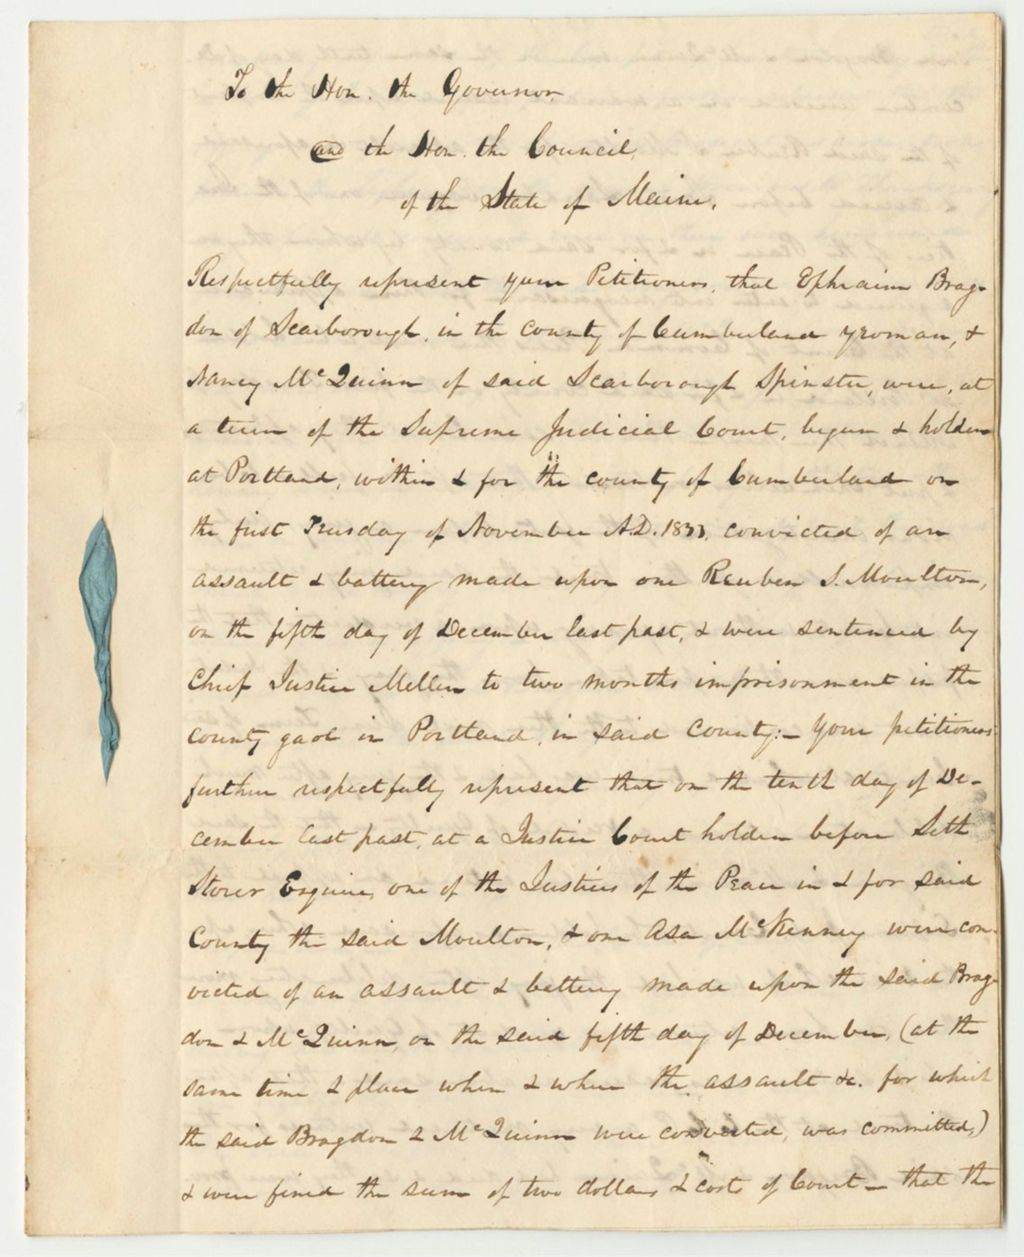 To the Hon. the Governor
and the Hon. the Council,
of the State of Maine.
Respectfully represent your Petitioners, that Ephraim Brag-
don of Scarborough, in the county of Cumberland yeoman, &
Nancy McQuinn of said Scarborough Spinster, were, at
a term of the Supreme Judicial Court, begun & holden
at Portland, within & for the county of Cumberland on
the first Tuesday of November A.D. 1833, convicted of an
assault & battery made upon one Reuben S. Moulton,
on the fifth day of December last past, & were sentenced by
Chief Justice Mellen to two months imprisonment in the
county gaol in Portland, in said County:– Your petitioners
further respectfully represent that on the tenth day of De-
cember last past, at a Justice Court holden before Seth
Storer Esquire, one of the Justices of the Peace in & for said
County the said Moulton, & one Asa McKenney were con-
victed of an assault & battery made upon the said Brag-
don & McQuinn, on the said fifth day of December, (at the
same time & place when & where the assault &c. for which
the said Bragdon & McQuinn were convicted, was committed,)
& were fined the sum of two dollars & costs of Court – that the